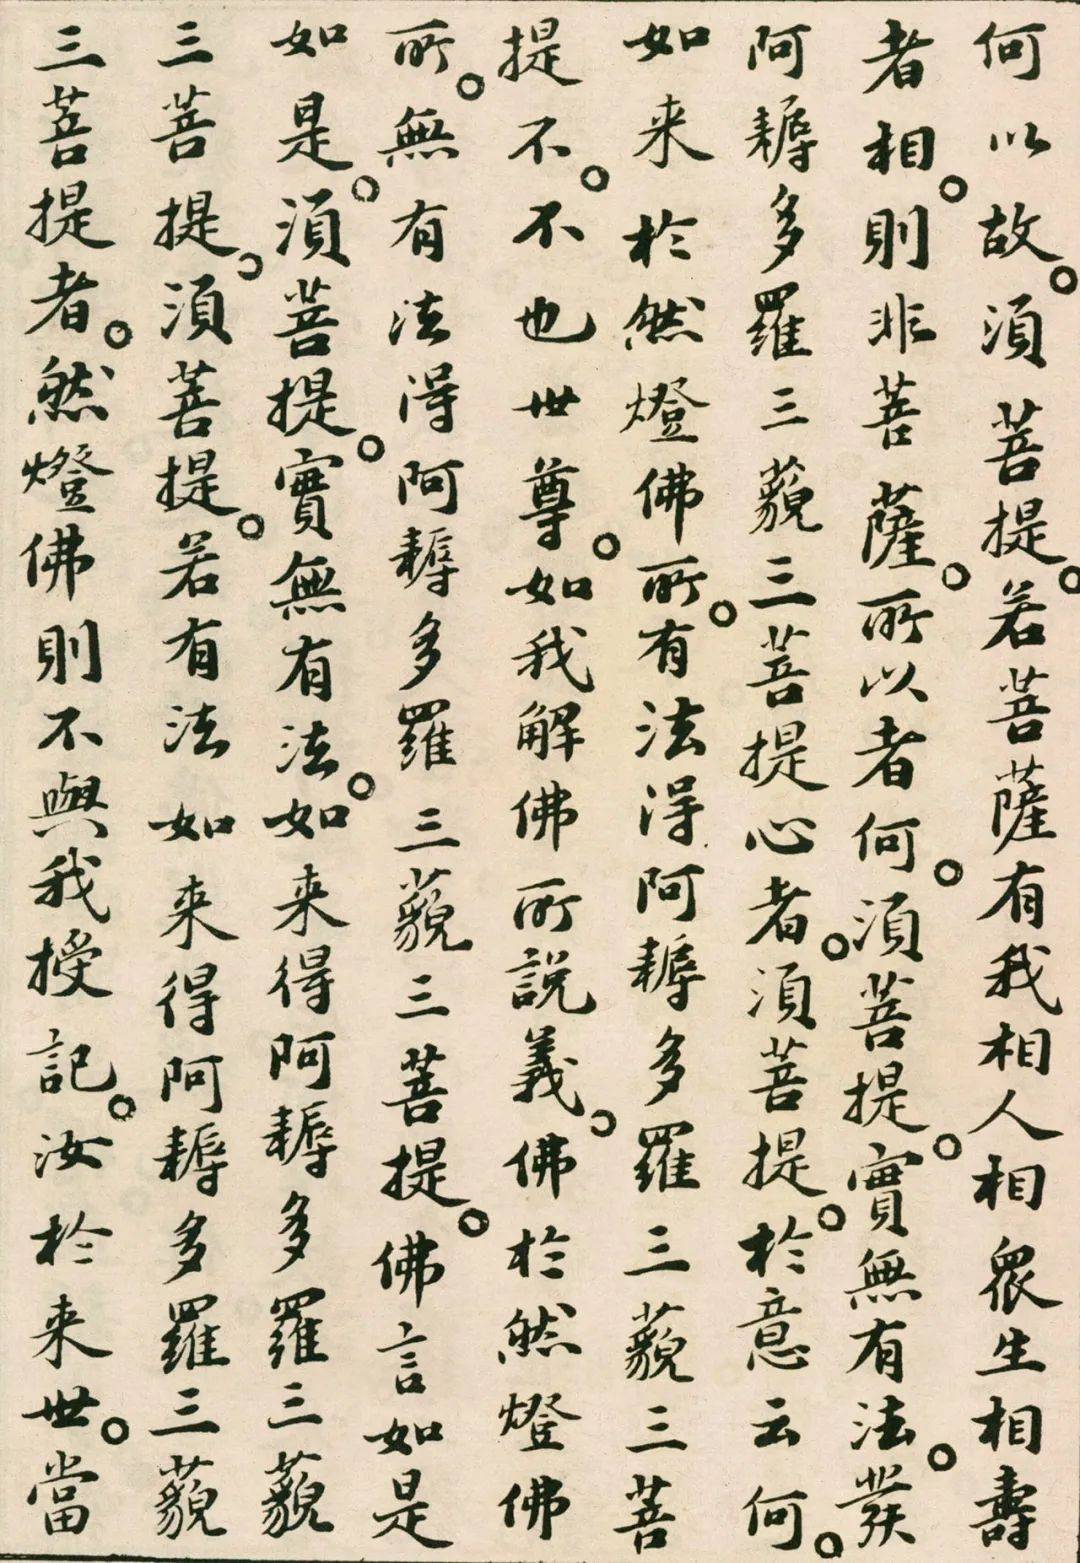 何以故。須菩提。若菩薩有我相人相眾生相壽
者相。則非菩薩。所以者何。須菩提。實無有法。發
阿耨多羅三藐三菩提心者。須菩提。於意云何。
如来於然燈佛所。有法得阿耨多羅三藐三菩
提不。不也世尊。如我解佛所說義。佛於然燈佛
所。無有法得阿耨多羅三藐三菩提。佛言如是
如是。須菩提。實無有法。如来得阿耨多羅三藐
三菩提。須菩提。若有法如来得阿耨多羅三藐
三菩提者。然燈佛則不與我授記。汝於来世。當